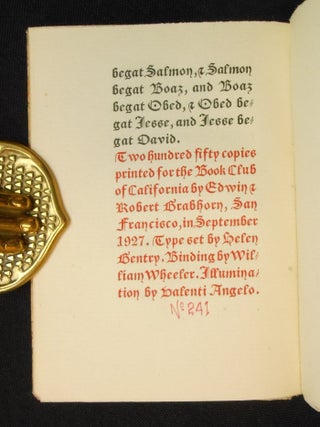 begat Salmon, & Salmon
begat Boaz, and Boaz
begat Obed, & Obed be-
gat Jesse, and Jesse be-
gat David.
Two hundred fifty copies
printed for the Book Club
of California by Edwin &
Robert Grabhorn, San
Francisco, in September
1927. Type set by Helen
Gentry. Binding by Wil-
liam Wheeler. Illumina-
tion by Valenti Angelo.
No 241